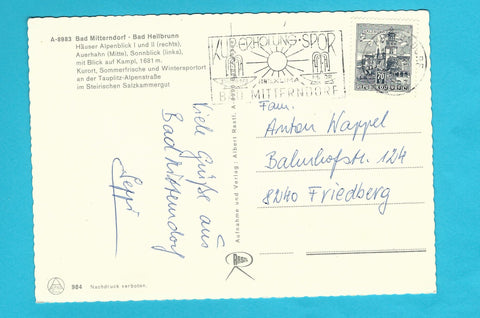 A-8983 Bad Mitterndorf - Bad Heilbrunn
Häuser Alpenblick I und II (rechts),
Auerhahn (Mitte), Sonnblick (links),
mit Blick auf Kampl, 1681 m.
Kurort, Sommerfrische und Wintersportort
an der Tauplitz-Alpenstraße
im Steirischen Salzkammergut
KUR·ERHOLUNG·SPORT
BAD MITTERNDORF
Viele Grüße aus
Bad Mitterndorf
Seppi
Aufnahme und Verlag: Albert Rastl, A-8990
RASTL
Fam.
Anton Wappel
Bahnhofstr. 124
8240 Friedberg
984 Nachdruck verboten.